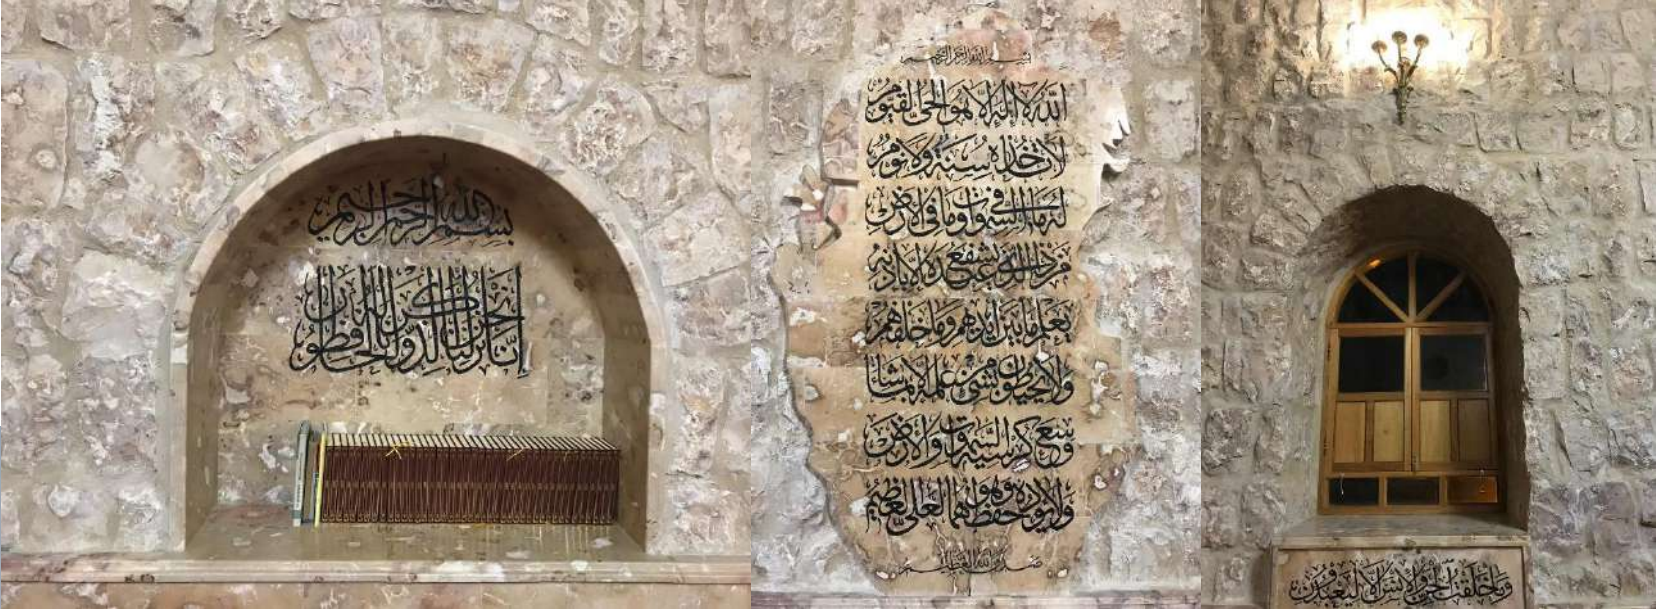 بسم الله الرحمن الرحيم
إنا نحن نزلنا الذكر وإنا له لحافظون
بسم الله الرحمن الرحيم
الله لا إله إلا هو الحي القيوم
لا تأخذه سنة ولا نوم
له ما في السموات وما في الأرض
من ذا الذي يشفع عنده إلا بإذنه
يعلم ما بين أيديهم وما خلفهم
ولا يحيطون بشيء من علمه إلا بما شاء
وسع كرسيه السموات والأرض
ولا يؤده حفظهما وهو العلي العظيم
صدق الله العظيم
وما خلقت الجن والإنس إلا ليعبدون